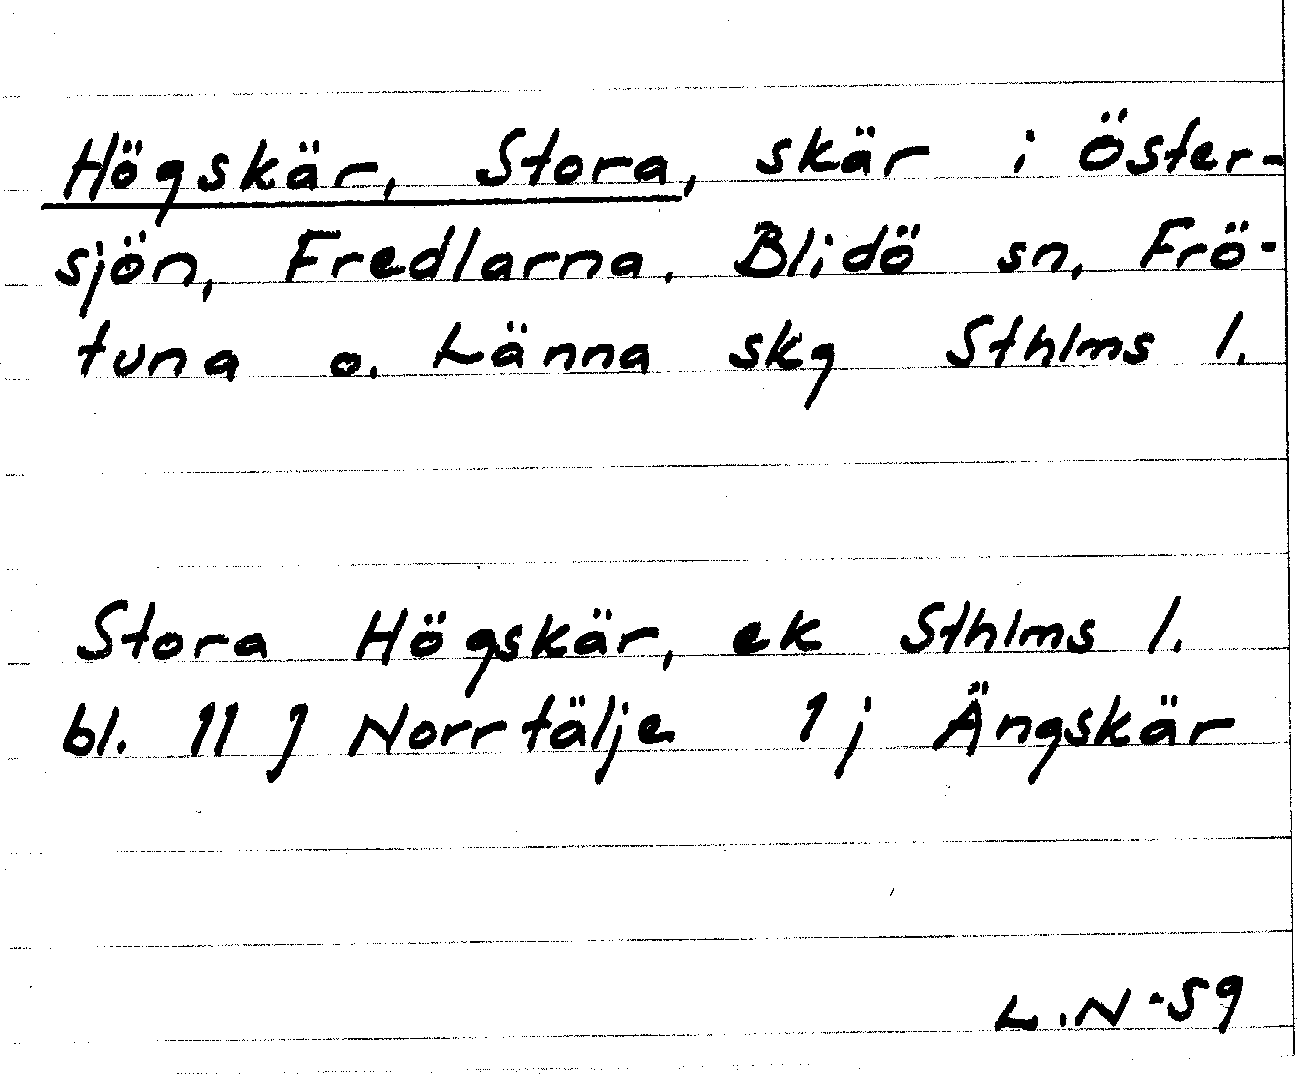 Högskär, Stora, skär i Öster-
sjön, Fredlarna, Blidö sn, Frö-
tuna o. Länna skg Sthlms l.
Stora Högskär, ek Sthlms l.
bl. 11 J Norrtälje 1 j Ängskär
L.N -59